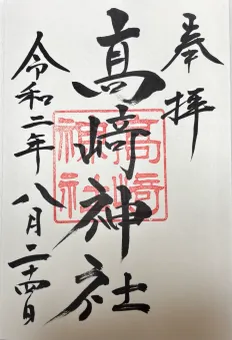 奉拝
高崎神社
高崎神社
令和二年八月二十四日